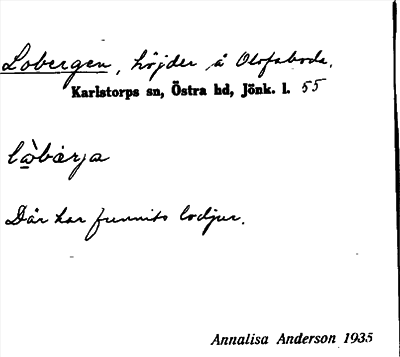 Lobergen, höjder å Olofsboda.
Karlstorps sn, Östra hd, Jönk. l. 55
lòbårja
Där har funnits lodjur.
Annalisa Anderson 1935